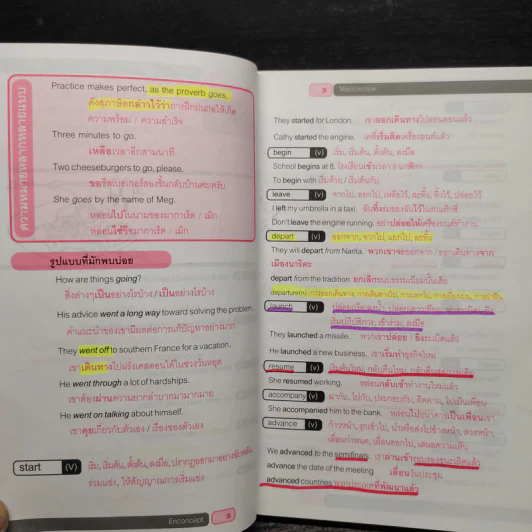 ความหมายหลากหลายแบบ
Practice makes perfect, as the proverb goes.
ดังสุภาษิตกล่าวไว้ว่าการฝึกฝนก่อให้เกิด
ความพร้อม / ความสำเร็จ
Three minutes to go.
เหลือเวลาอีกสามนาที
Two cheeseburgers to go, please.
ขอชีสเบอเกอร์สองชิ้นกลับบ้านค่ะ/ครับ
She goes by the name of Meg.
หล่อนไปในนามของมากาเร็ต / เม็ก
หล่อนใช้ชื่อมากาเร็ต / เม็ก
รูปแบบที่มักพบบ่อย
How are things going?
สิ่งต่างๆเป็นอย่างไรบ้าง / เป็นอย่างไรบ้าง
His advice went a long way toward solving the problem.
คำแนะนำของเขามีผลต่อการแก้ปัญหาอย่างมาก
They went off to southern France for a vacation.
เขาเดินทางไปฝรั่งเศสตอนใต้ในช่วงวันหยุด
He went through a lot of hardships.
เขาต้องผ่านความยากลำบากมามากมาย
He went on talking about himself.
เขาคุยเกี่ยวกับตัวเอง / เรื่องของตัวเอง
start (V) เริ่ม, เริ่มต้น, ตั้งต้น, ลงมือ, ปรากฏออกมาอย่างฉับพลัน
ร่วมแข่ง, ให้สัญญาณการเริ่มแข่ง
Enconcept
Macroscope
They started for London. เขาออกเดินทางไปลอนดอนแล้ว
Cathy started the engine. เคที่เริ่มติดเครื่องยนต์แล้ว
begin (v) เริ่ม, เริ่มต้น, ตั้งต้น, ลงมือ
School begins at 8. โรงเรียนเข้าเวลา 8 นาฬิกา
To begin with เริ่มด้วย / เริ่มต้นกับ
leave (v) จากไป, ออกไป, เหลือไว้, ละทิ้ง, ทิ้งไว้, ปล่อยไว้
I left my umbrella in a taxi. ฉันทิ้งร่มของฉันไว้ในรถแท็กซี่
Don't leave the engine running. อย่าปล่อยให้เครื่องยนต์ทำงาน
depart (v) ออกจาก, จากไป, แยกไป, ละทิ้ง
They will depart from Narita. พวกเขาจะออกจาก / ออกเดินทางจาก
เมืองนาริตะ
depart from the tradition ยกเลิกขนบธรรมเนียมดั้งเดิม
departure(n) การออกเดินทาง, การเดินทางไป, การแยกไป,
launch (v)
เริ่มปฏิบัติการ, เข้าร่วม, ลงมือ
They launched a missile. พวกเขาปล่อย / ยิงระเบิดแล้ว
He launched a new business. เขาเริ่มทำธุรกิจใหม่
resume (v) เริ่มต้นใหม่, กลับคืนใหม่,
She resumed working. หล่อนกลับเข้าทำงานใหม่แล้ว
accompany (v) มากับ, ไปกับ, ประกอบกับ, ติดตาม, ไปเป็นเพื่อน
She accompanied him to the bank. หล่อนไปธนาคารเป็นเพื่อนเขา
advance (v) ก้าวหน้า, รุกเข้าไป, นำหรือส่งไปข้างหน้า, ล่วงหน้า,
เลื่อนกำหนด, เลื่อนออกไป, เสนอความเห็น
We advanced to the semifinals. เราผ่านเข้ารอบรองชนะเลิศแล้ว
advance the date of the meeting เลื่อนวันประชุม
advanced countries พวกประเทศที่พัฒนาแล้ว